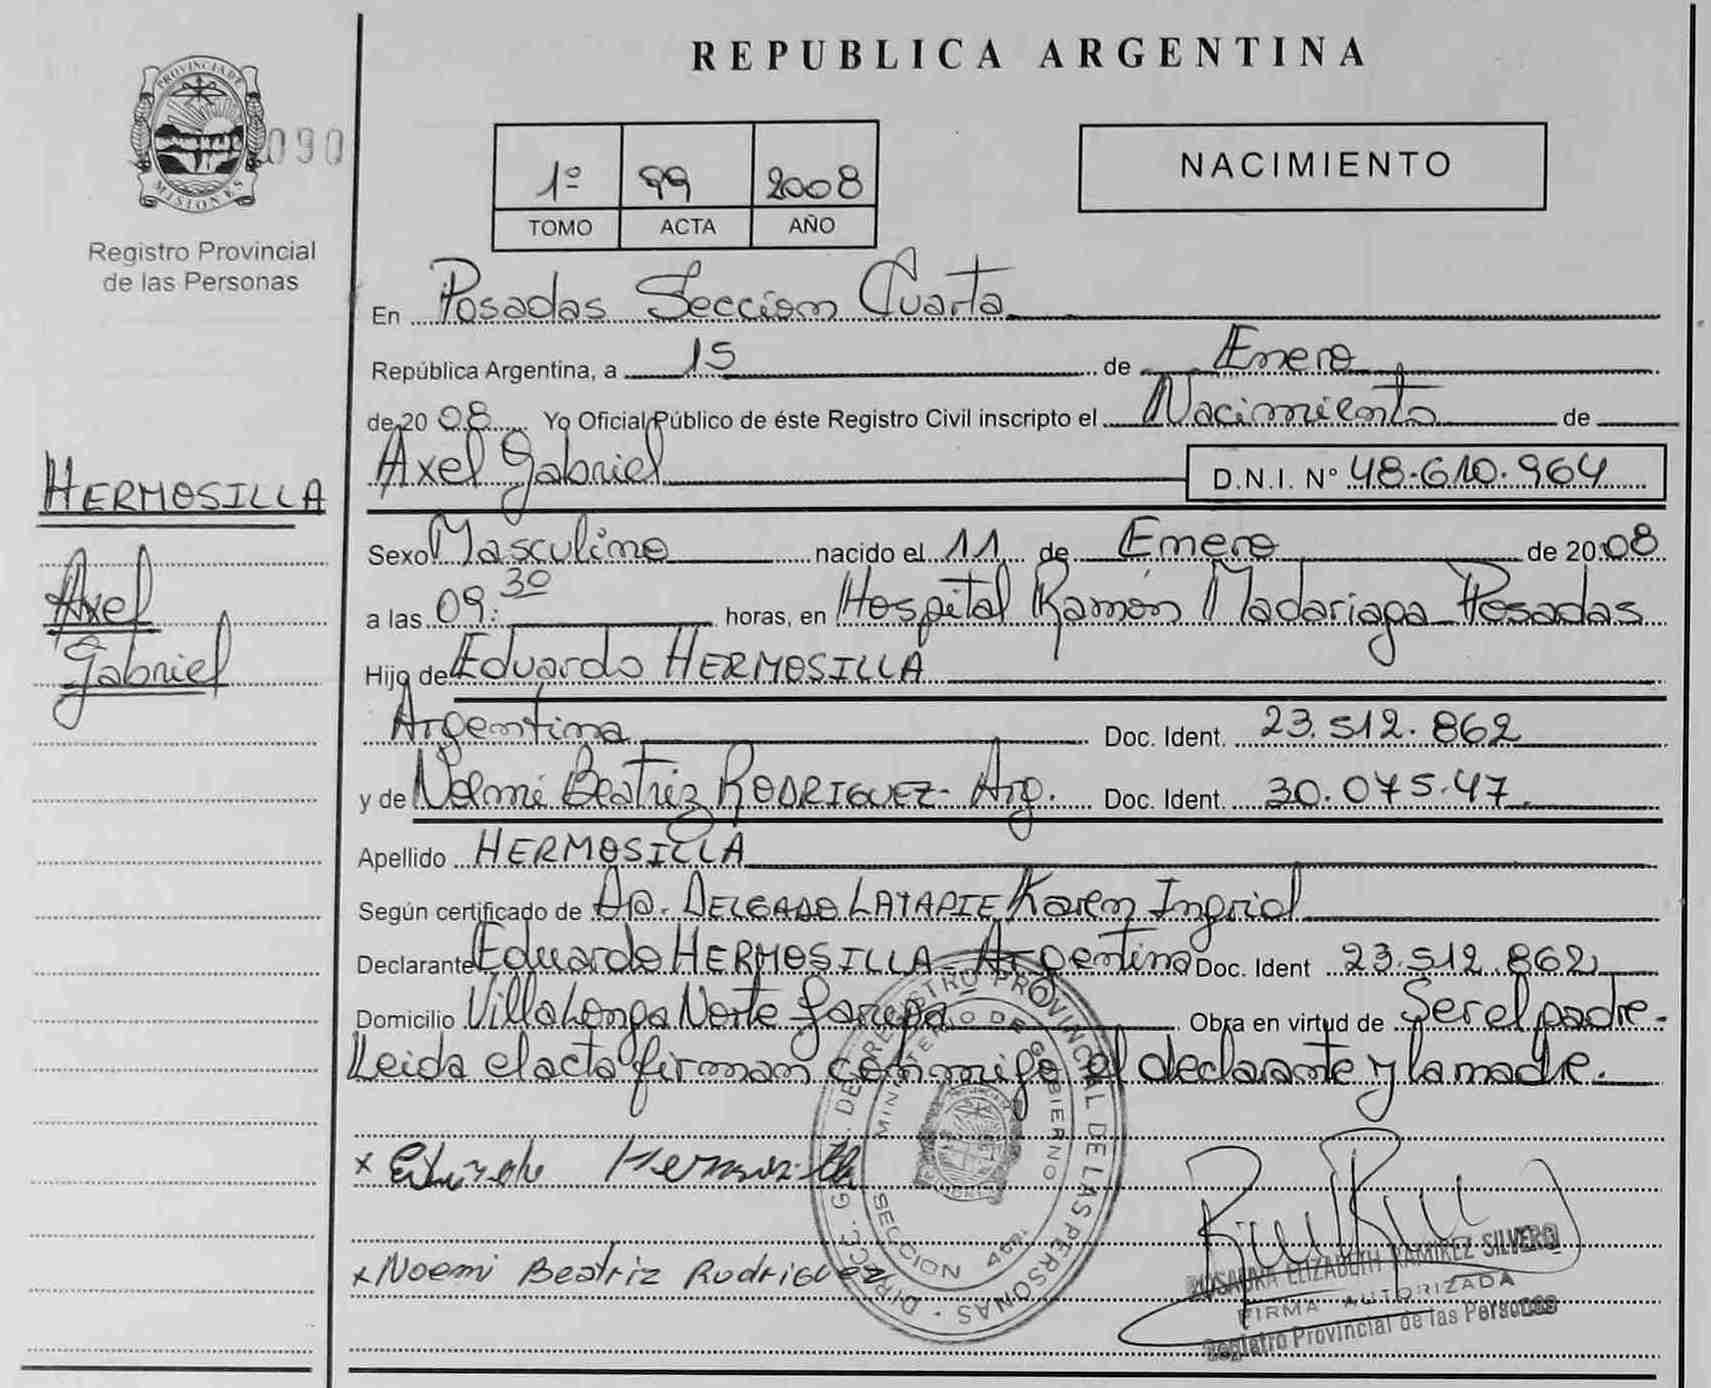 PROVINCIA DE
MISIONES
090
Registro Provincial
de las Personas
HERMOSILLA
Axel
Gabriel
REPUBLICA ARGENTINA
1º 99 2008
TOMO ACTA AÑO
NACIMIENTO
En Posadas Seccion Cuarta
República Argentina, a 15 de Enero
de 20 08 Yo Oficial Público de éste Registro Civil inscripto el Nacimiento de
Axel Gabriel D.N.I. Nº 48.610.964
Sexo Masculino nacido el 11 de Enero de 20 08
a las 09:30 horas, en Hospital Ramón Madariaga Posadas
Hijo de Eduardo HERMOSILLA
Argentina Doc. Ident. 23.512.862
y de Noemi Beatriz RODRIGUEZ- Arg. Doc. Ident. 30.075.47
Apellido HERMOSILLA
Según certificado de DELGADO LATAPIE Karen Ingrid
Declarante Eduardo HERMOSILLA- Argentina Doc. Ident 23.512.862
Domicilio Villa Longa Norte Garupa Obra en virtud de Ser el padre.
Leida el acta firman conmigo el declarante y la madre.
x Eduardo Hermosilla
x Noemi Beatriz Rodriguez
DIRECC. GRAL. DEL REGISTRO PROVINCIAL DE LAS PERSONAS
MINISTERIO DE GOBIERNO
SECCION 4ta.
ROSAURA ELIZABETH RAMIREZ SILVERO
FIRMA AUTORIZADA
Registro Provincial de las Personas